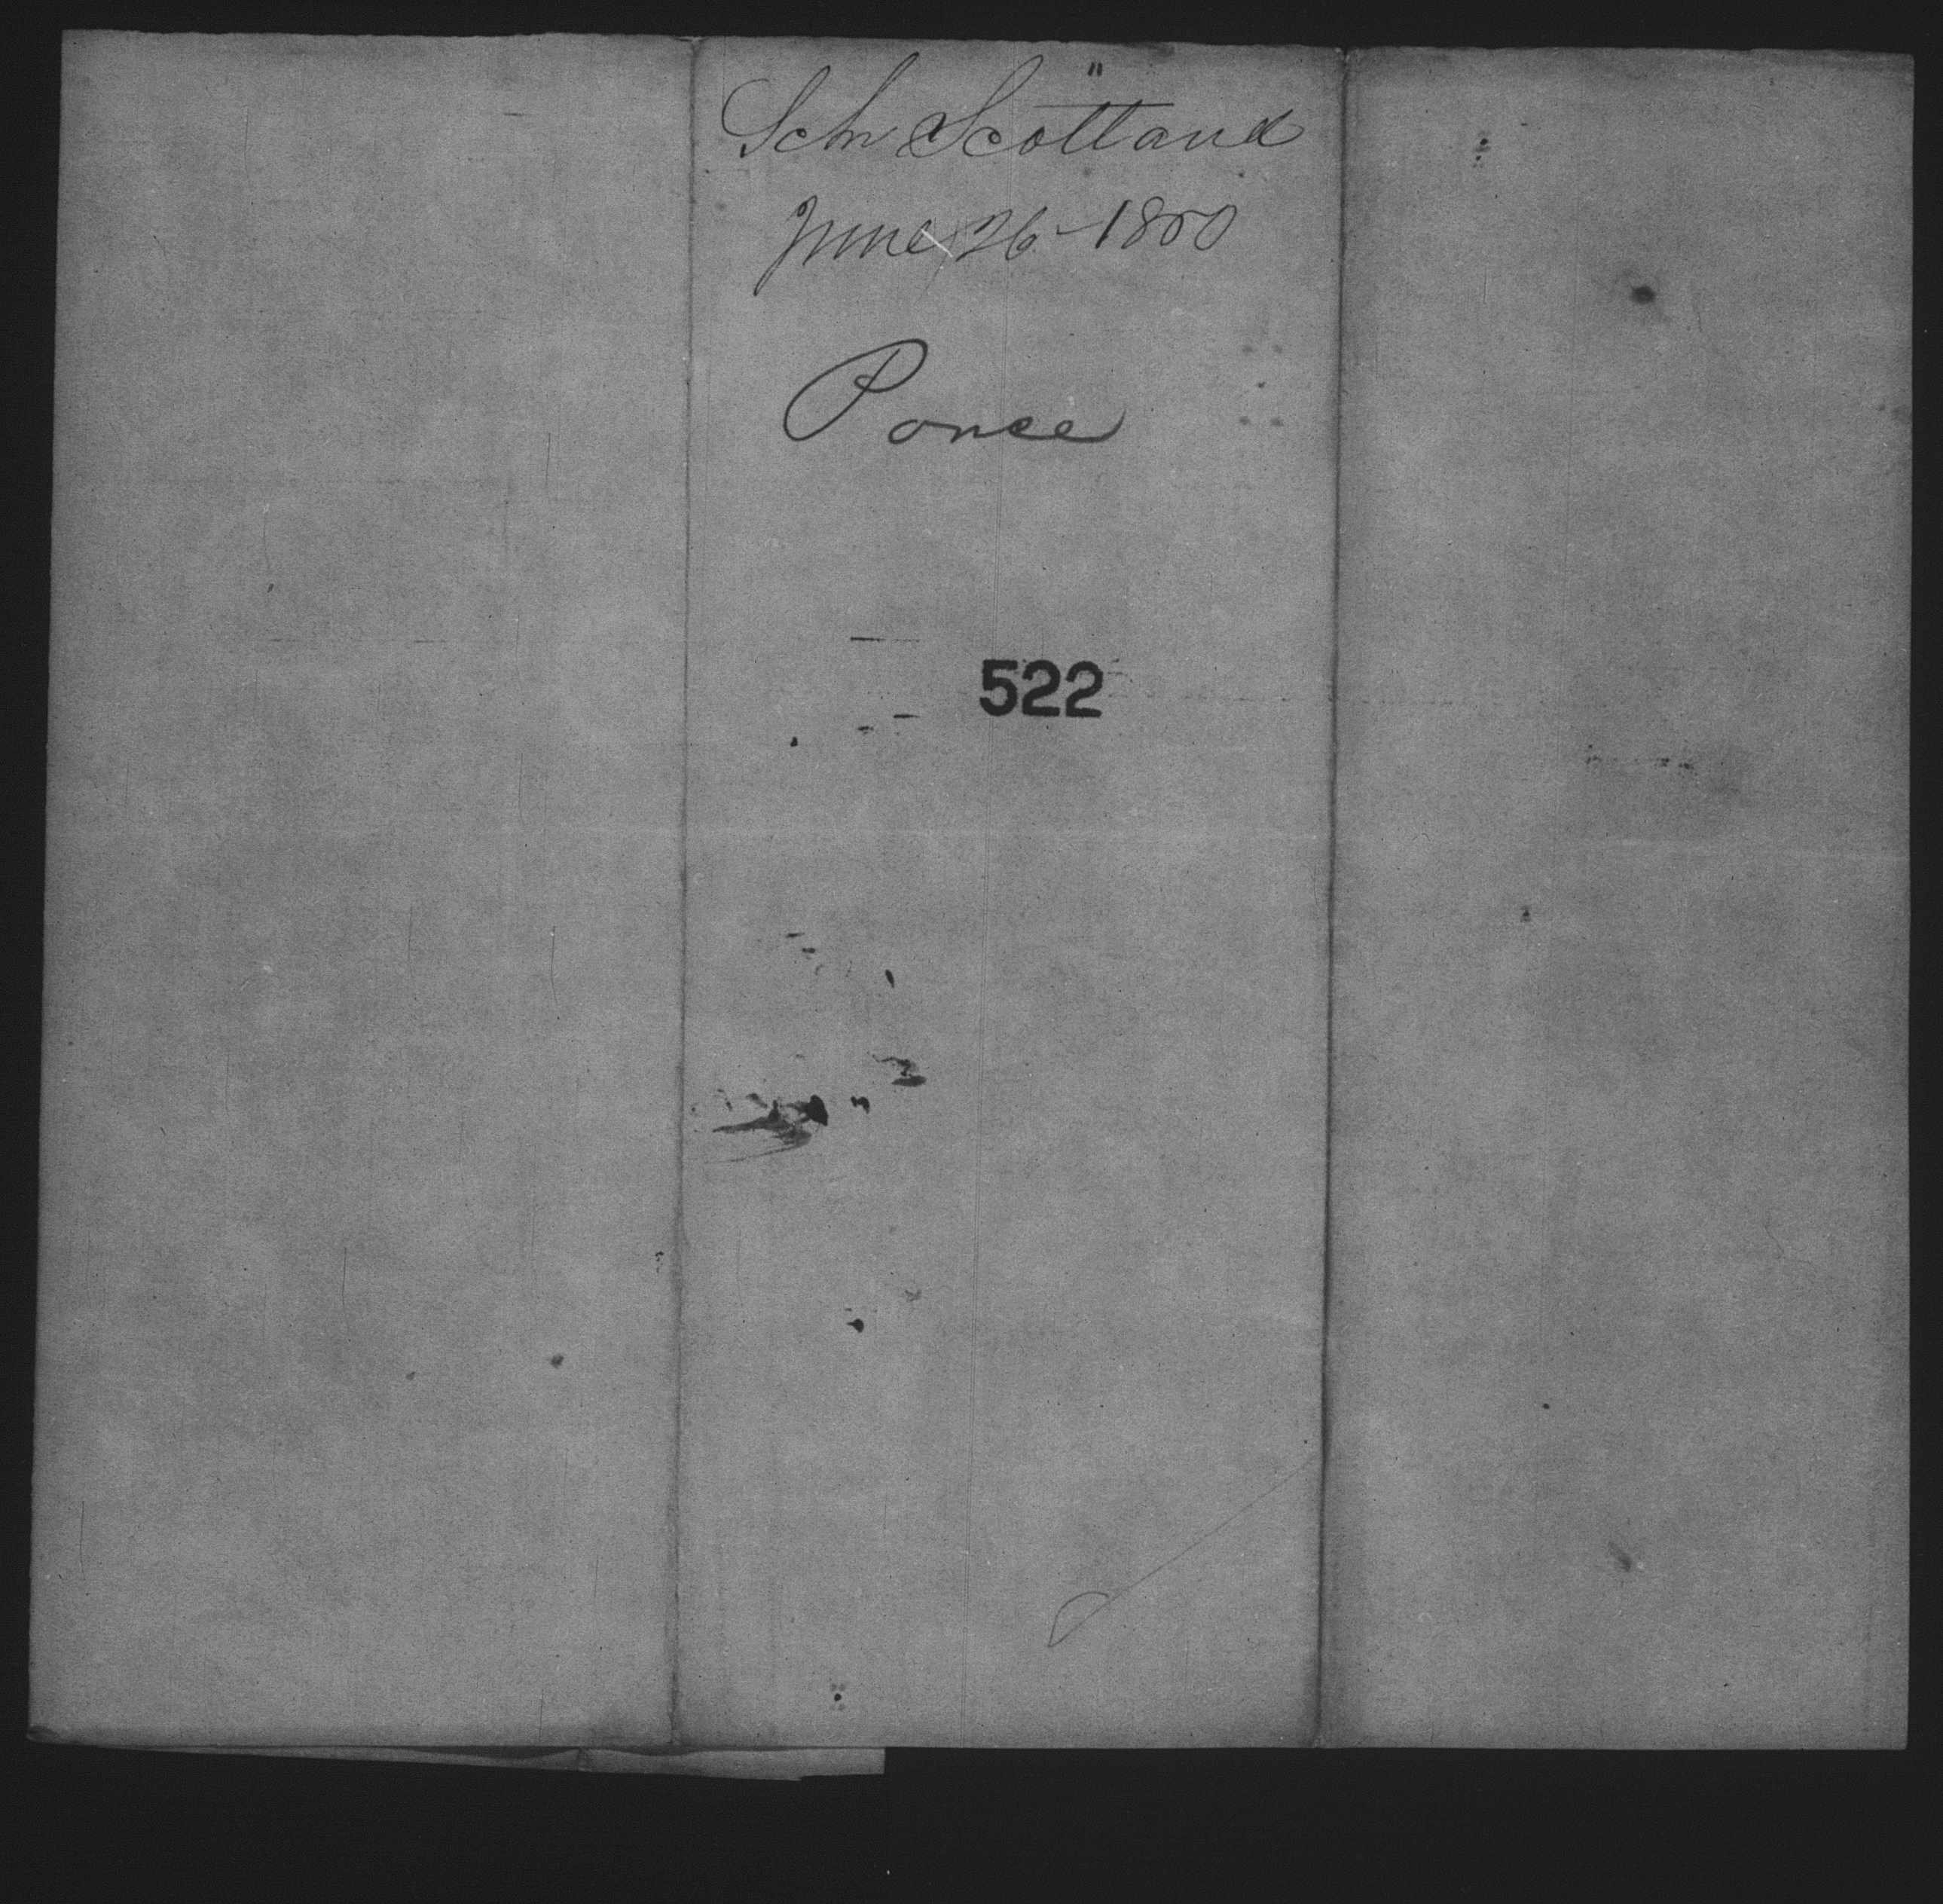 Sch Scotland
June 26 - 1850
Ponce
522